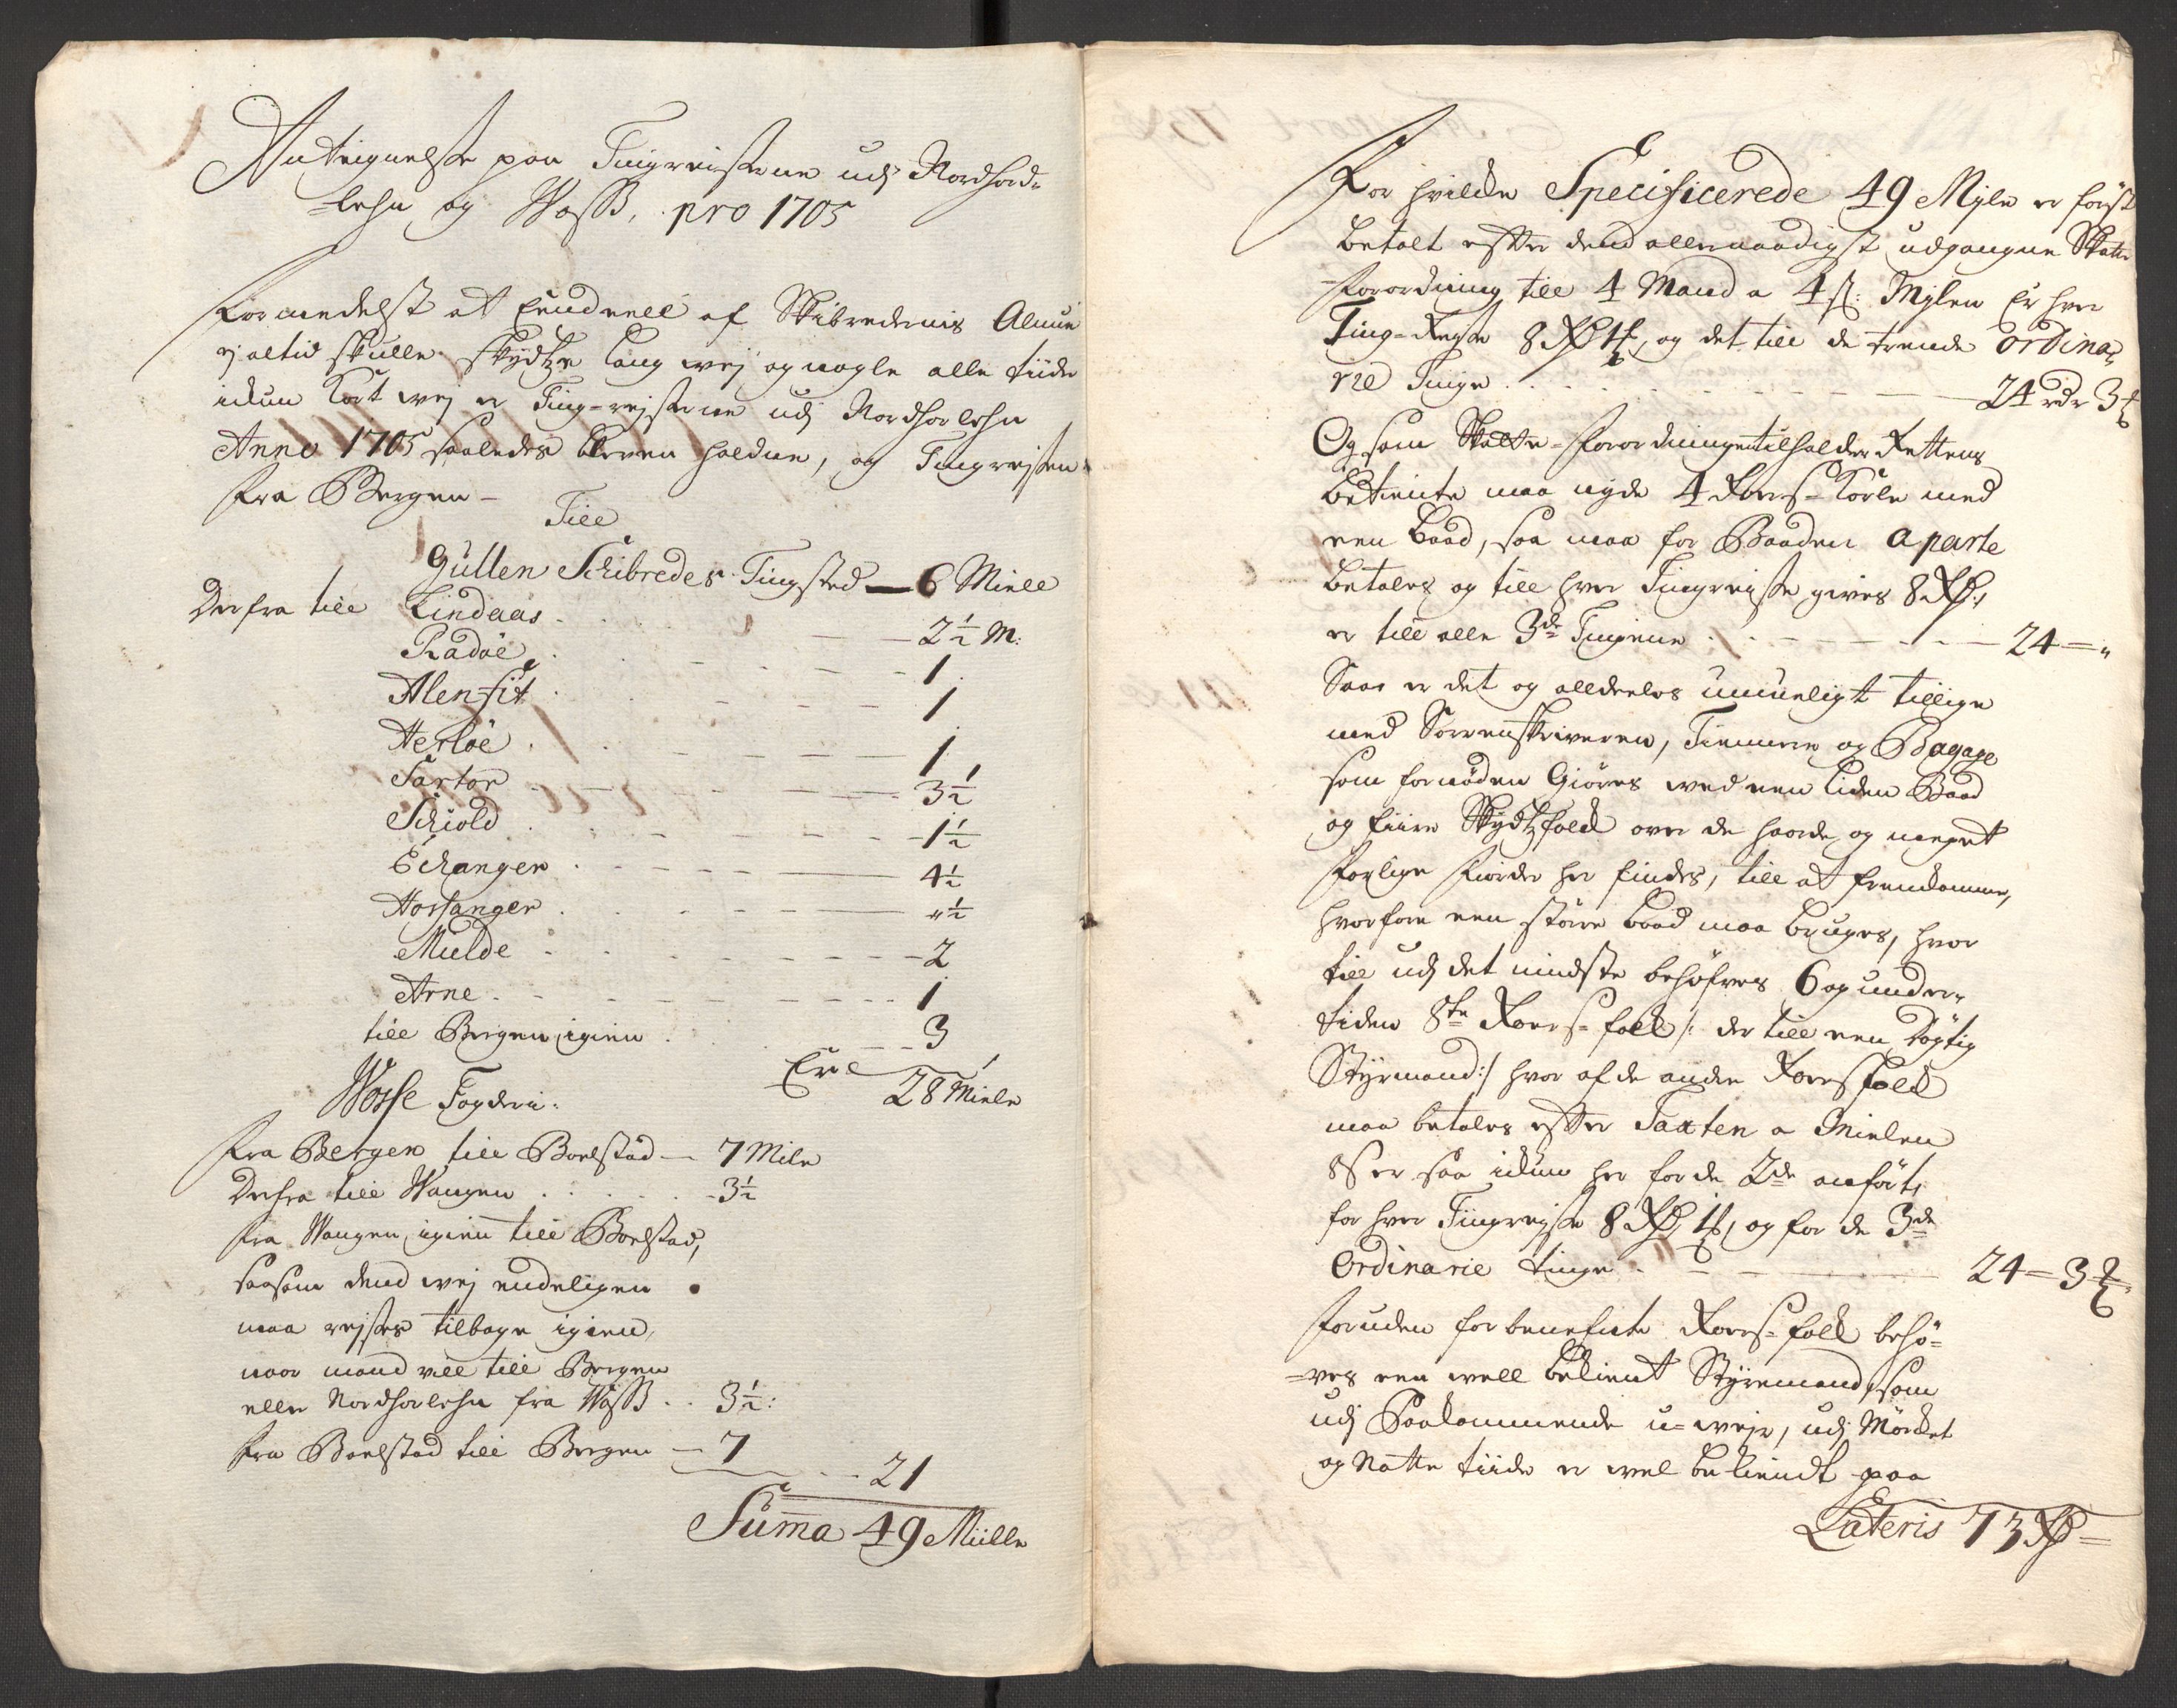 Antegnelse paa Tingreiserne udj Nordhord-
-lehn og Woss, pro 1705
Formedelst at Eendeell af Skibredernis Almue
ej altid skulle skydtze lang wej og nogle alle tiider
ickun kort wej er Ting-rejserne udj Nordhorlehn
Anno 1705 saaledes bleven holdne, og Tingrejsen
fra Bergen -
Till
Gullen Schibredes Tingsted — 6 Miell
Derfra till Lindaas — 2½ M:
Radöe — 1
Alenfit — 1
Herlöe — 1
Sartor — 3½
Schiold — 1½
Echanger — 4½
Hosanger — „½
Mulde — 2
Arne — 1
till Bergen igien — 3
Er 28 Miele
Wosse Fogderi:
Fra Bergen till Boelstad — 7 Mile
Derfra till Wangen — 3½
Fra Wangen igien till Boelstad,
saasom dend wej endeligen
maa rejses tilbage igien,
naar mand vill till Bergen
eller Nordhorlehn fra Woss . . 3½:
fra Boelstad till Bergen — 7
21
Summa 49 Miille
For hvilcke Specificerede 49 Mjle er först
betalt efter dend allernaadigst udgangne Skatte
forordning till 4 Mand a 4 s: Mjlen Er hver
Ting-Rejse 8 Rd 1 , og det till de trende Ordina-
rie Tinge — 24 rdr 3
Og som Skatte-forordningen tilholder Rettens
Betiente maa nyde 4 Roers-Karle med
een baad, saa maa for Baaden aparte
betales og till hver Tingrejse gives 8 Rd:,
er till alle 3de Tingene — 24 — „
Saa er det og alldeeles umueligt tillige
med Sorrenskriveren, Tiennere og Bagage
som fornöden Giöres med een liden Baad
og fiire Skydtzfolck over de haarde og meget
farlige fiorder her findes, till at fremkomme,
hvorfore een större baad maa bruges, hvor
till udj det mindste behöfves 6 og under-
tiden 8te Roers-folck /: der till een dögtig
Styrmand :/ hvor af de andre Roersfolck
maa betales efter Taxten a Mielen
8 s er saa ickun her for de 2de anfört,
for hver Tiingrejse 8 Rd 1 , og for de 3de
Ordinarie tinge — 24 — 3
foruden forbenefnte Roers-folck behö-
-ves een well bekient Styremand, som
udj Paakommende u-wejr, udj Mörcket
og Natte tiide er wel bekiendt paa
Lateris 73 Rd =